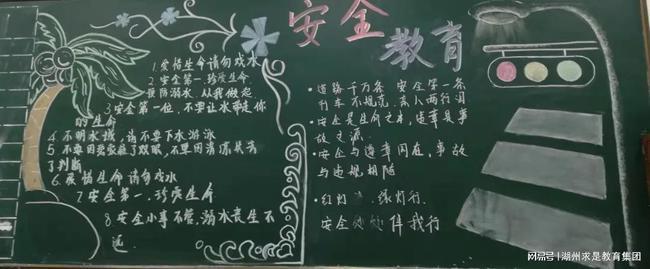 安全教育
1.爱惜生命请勿戏水
2.安全第一.珍爱生命
预防溺水.从我做起
3.安全第一位.不要让水带走你
的生命
4.不明水域,请不要下水游泳
5.不要因爱蒙蔽了双眼,不要因清凉失去
了判断
6.爱惜生命请勿戏水
7.安全第一.珍爱生命
8.安全小事不管.溺水丧生不
远.
·道路千万条 安全第一条
行车不规范.亲人两行泪
·安全是生命之本,违章是事
故之源.
·安全与遵章同在,事故
与违规相随
·红灯 绿灯行.
安全处处伴我行
新浪号|湖州求是教育集团